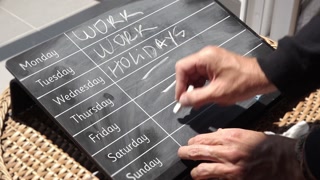 Monday WORK
Tuesday WORK
Wednesday HOLIDAYS
Thursday
Friday
Saturday
Sunday